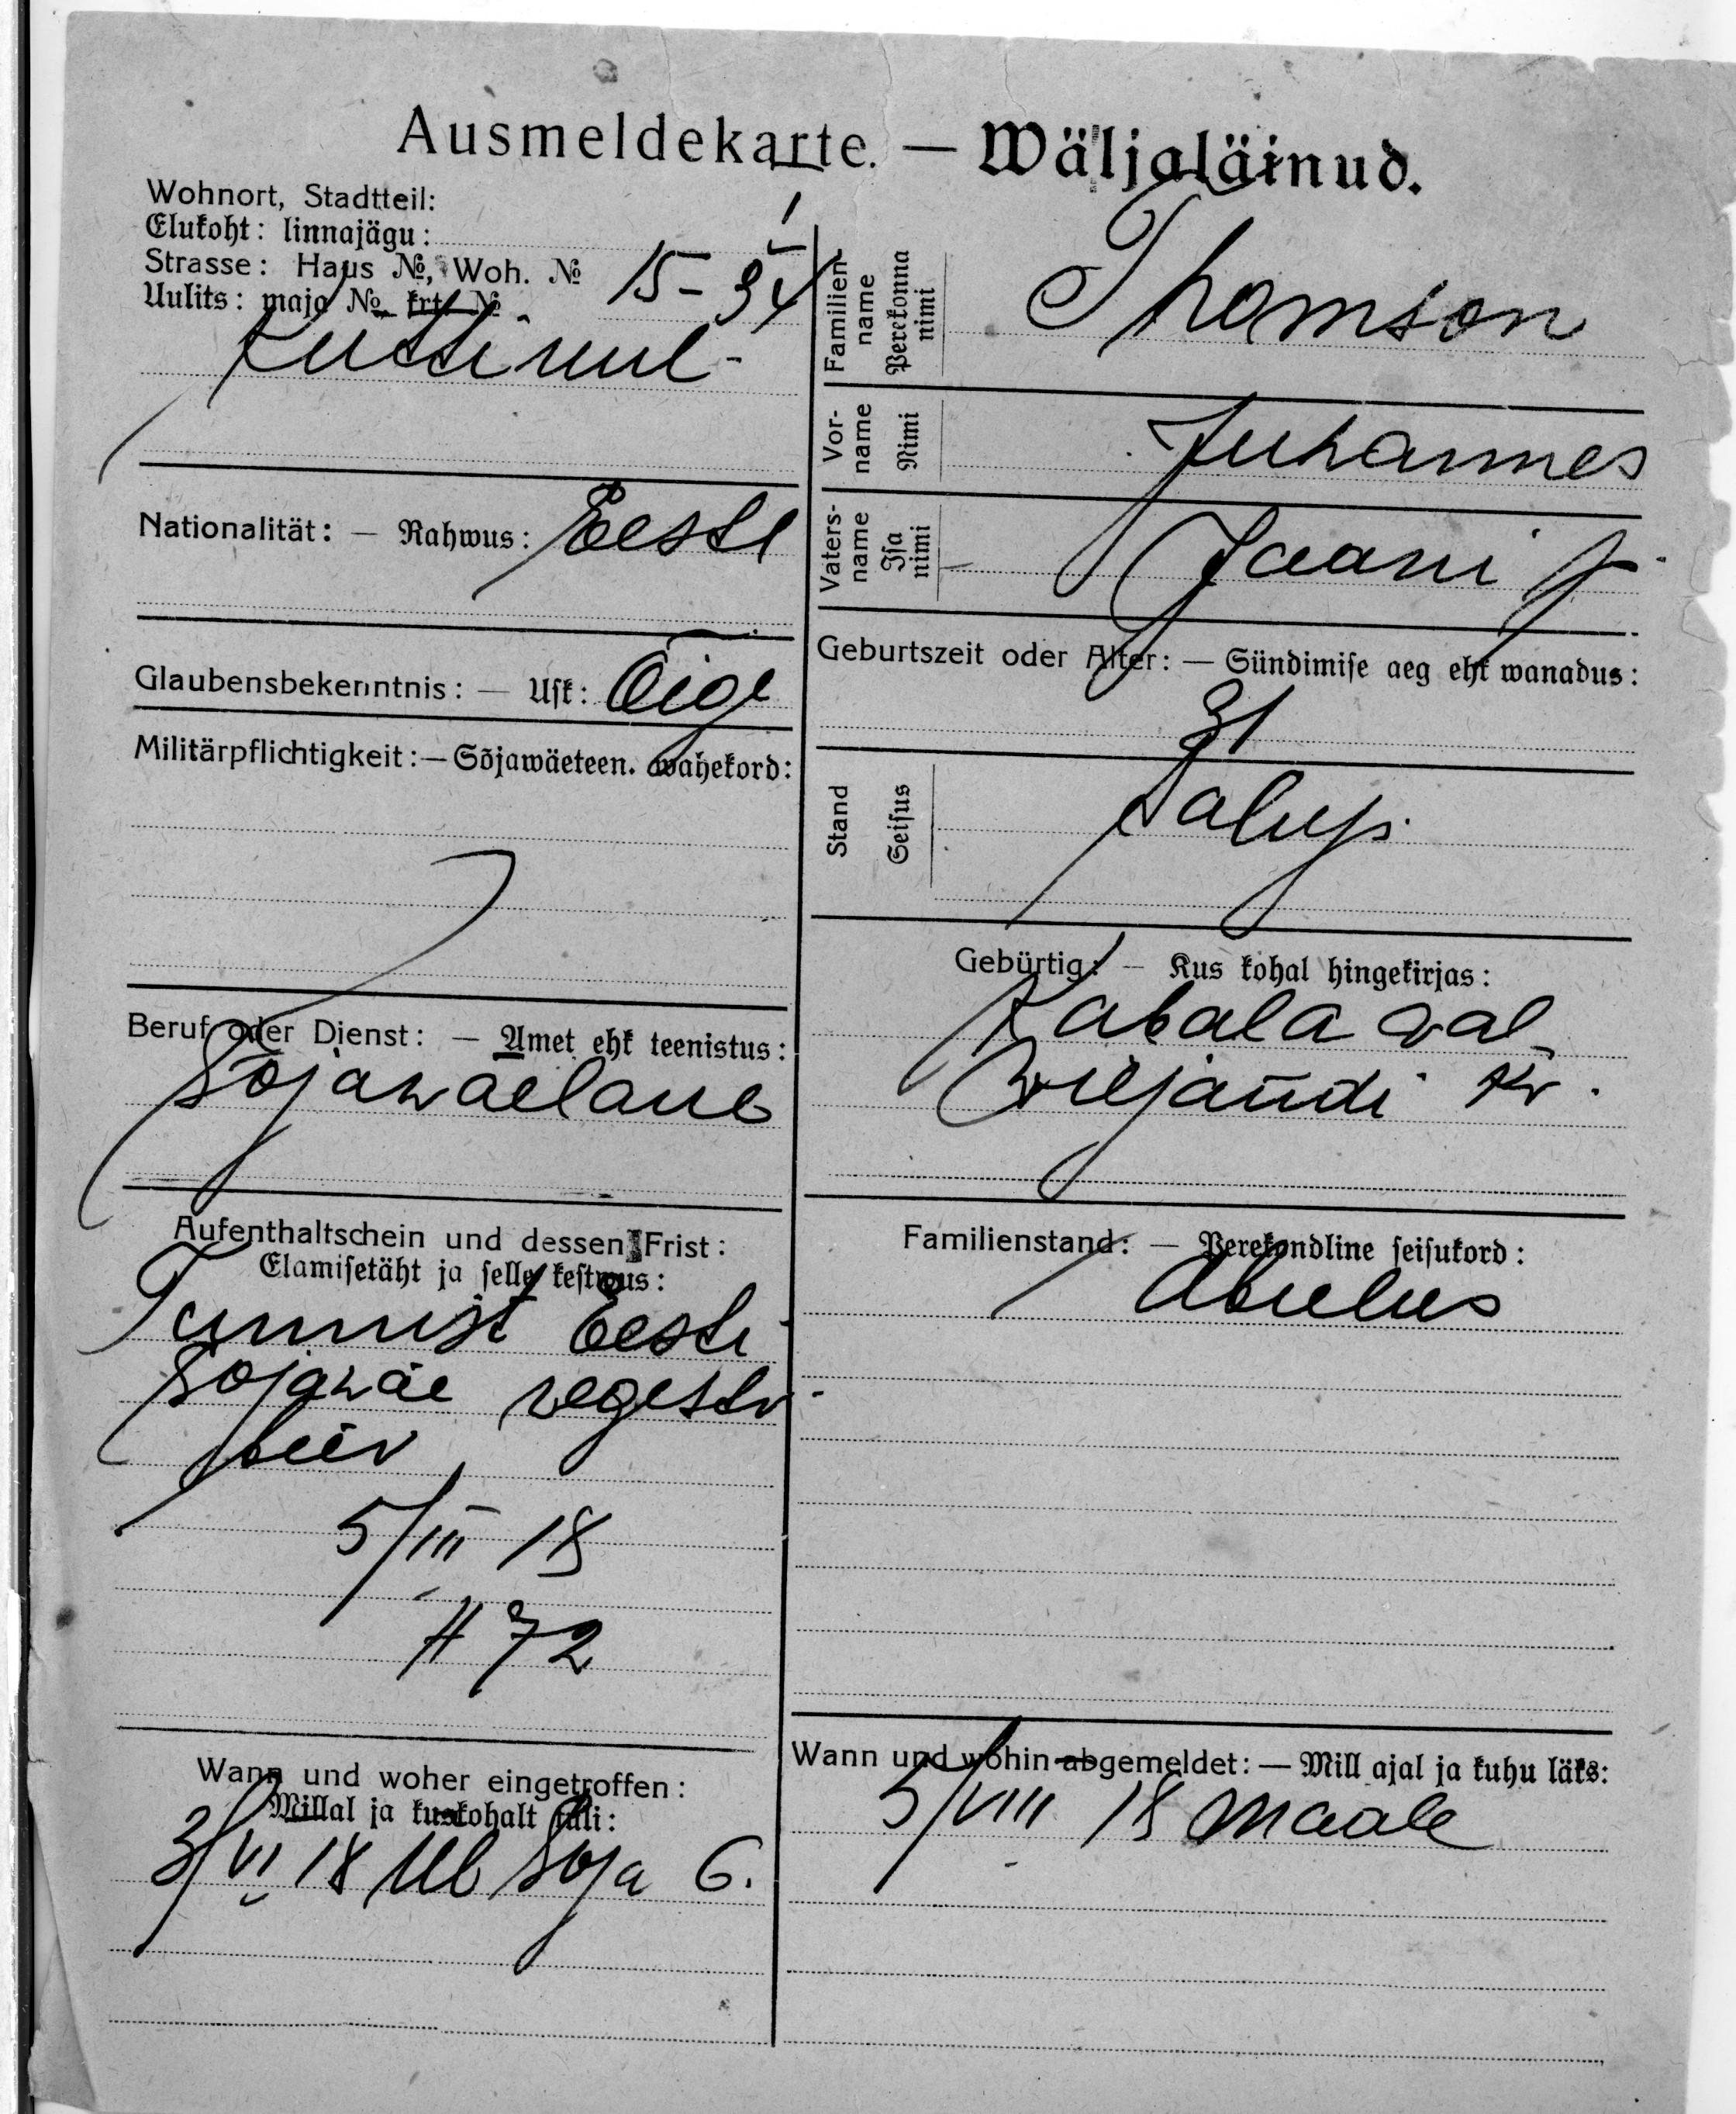 Ausmeldekarte. — Wäljaläinud.
Wohnort, Stadtteil:
Elukoht: linnajägu:
Strasse: Haus №, Woh. №
Uulits: maja № krt. №
15-34
Nationalität: — Rahwus: Eesti
Glaubensbekenntnis: — Usk: Õige
Militärpflichtigkeit: — Sõjawäeteen. wahekord:
Beruf oder Dienst: — Amet ehk teenistus:
Sõjawäelane
Aufenthaltschein und dessen Frist:
Elamisetäht ja selle kestwus:
Tunnist Eesti
Sojawäe regestr
5/III 18
# 72
Wann und woher eingetroffen:
Millal ja kuskohalt tuli:
3/VI 18 Ub Sõja 6.
Familien-
name
Perekonna
nimi
Thomson
Vor-
name
Nimi
Juhannes
Vaters-
name
Isa
nimi
Jaani p.
Geburtszeit oder Alter: — Sündimise aeg ehk wanadus:
31
Stand
Seisus
Talup.
Gebürtig: — Kus kohal hingekirjas:
Kabala wal.
Wiljandi kr.
Familienstand: — Perekondline seisukord:
Abielus
Wann und wohin abgemeldet: — Mill ajal ja kuhu läks:
5/VIII 18 Maale